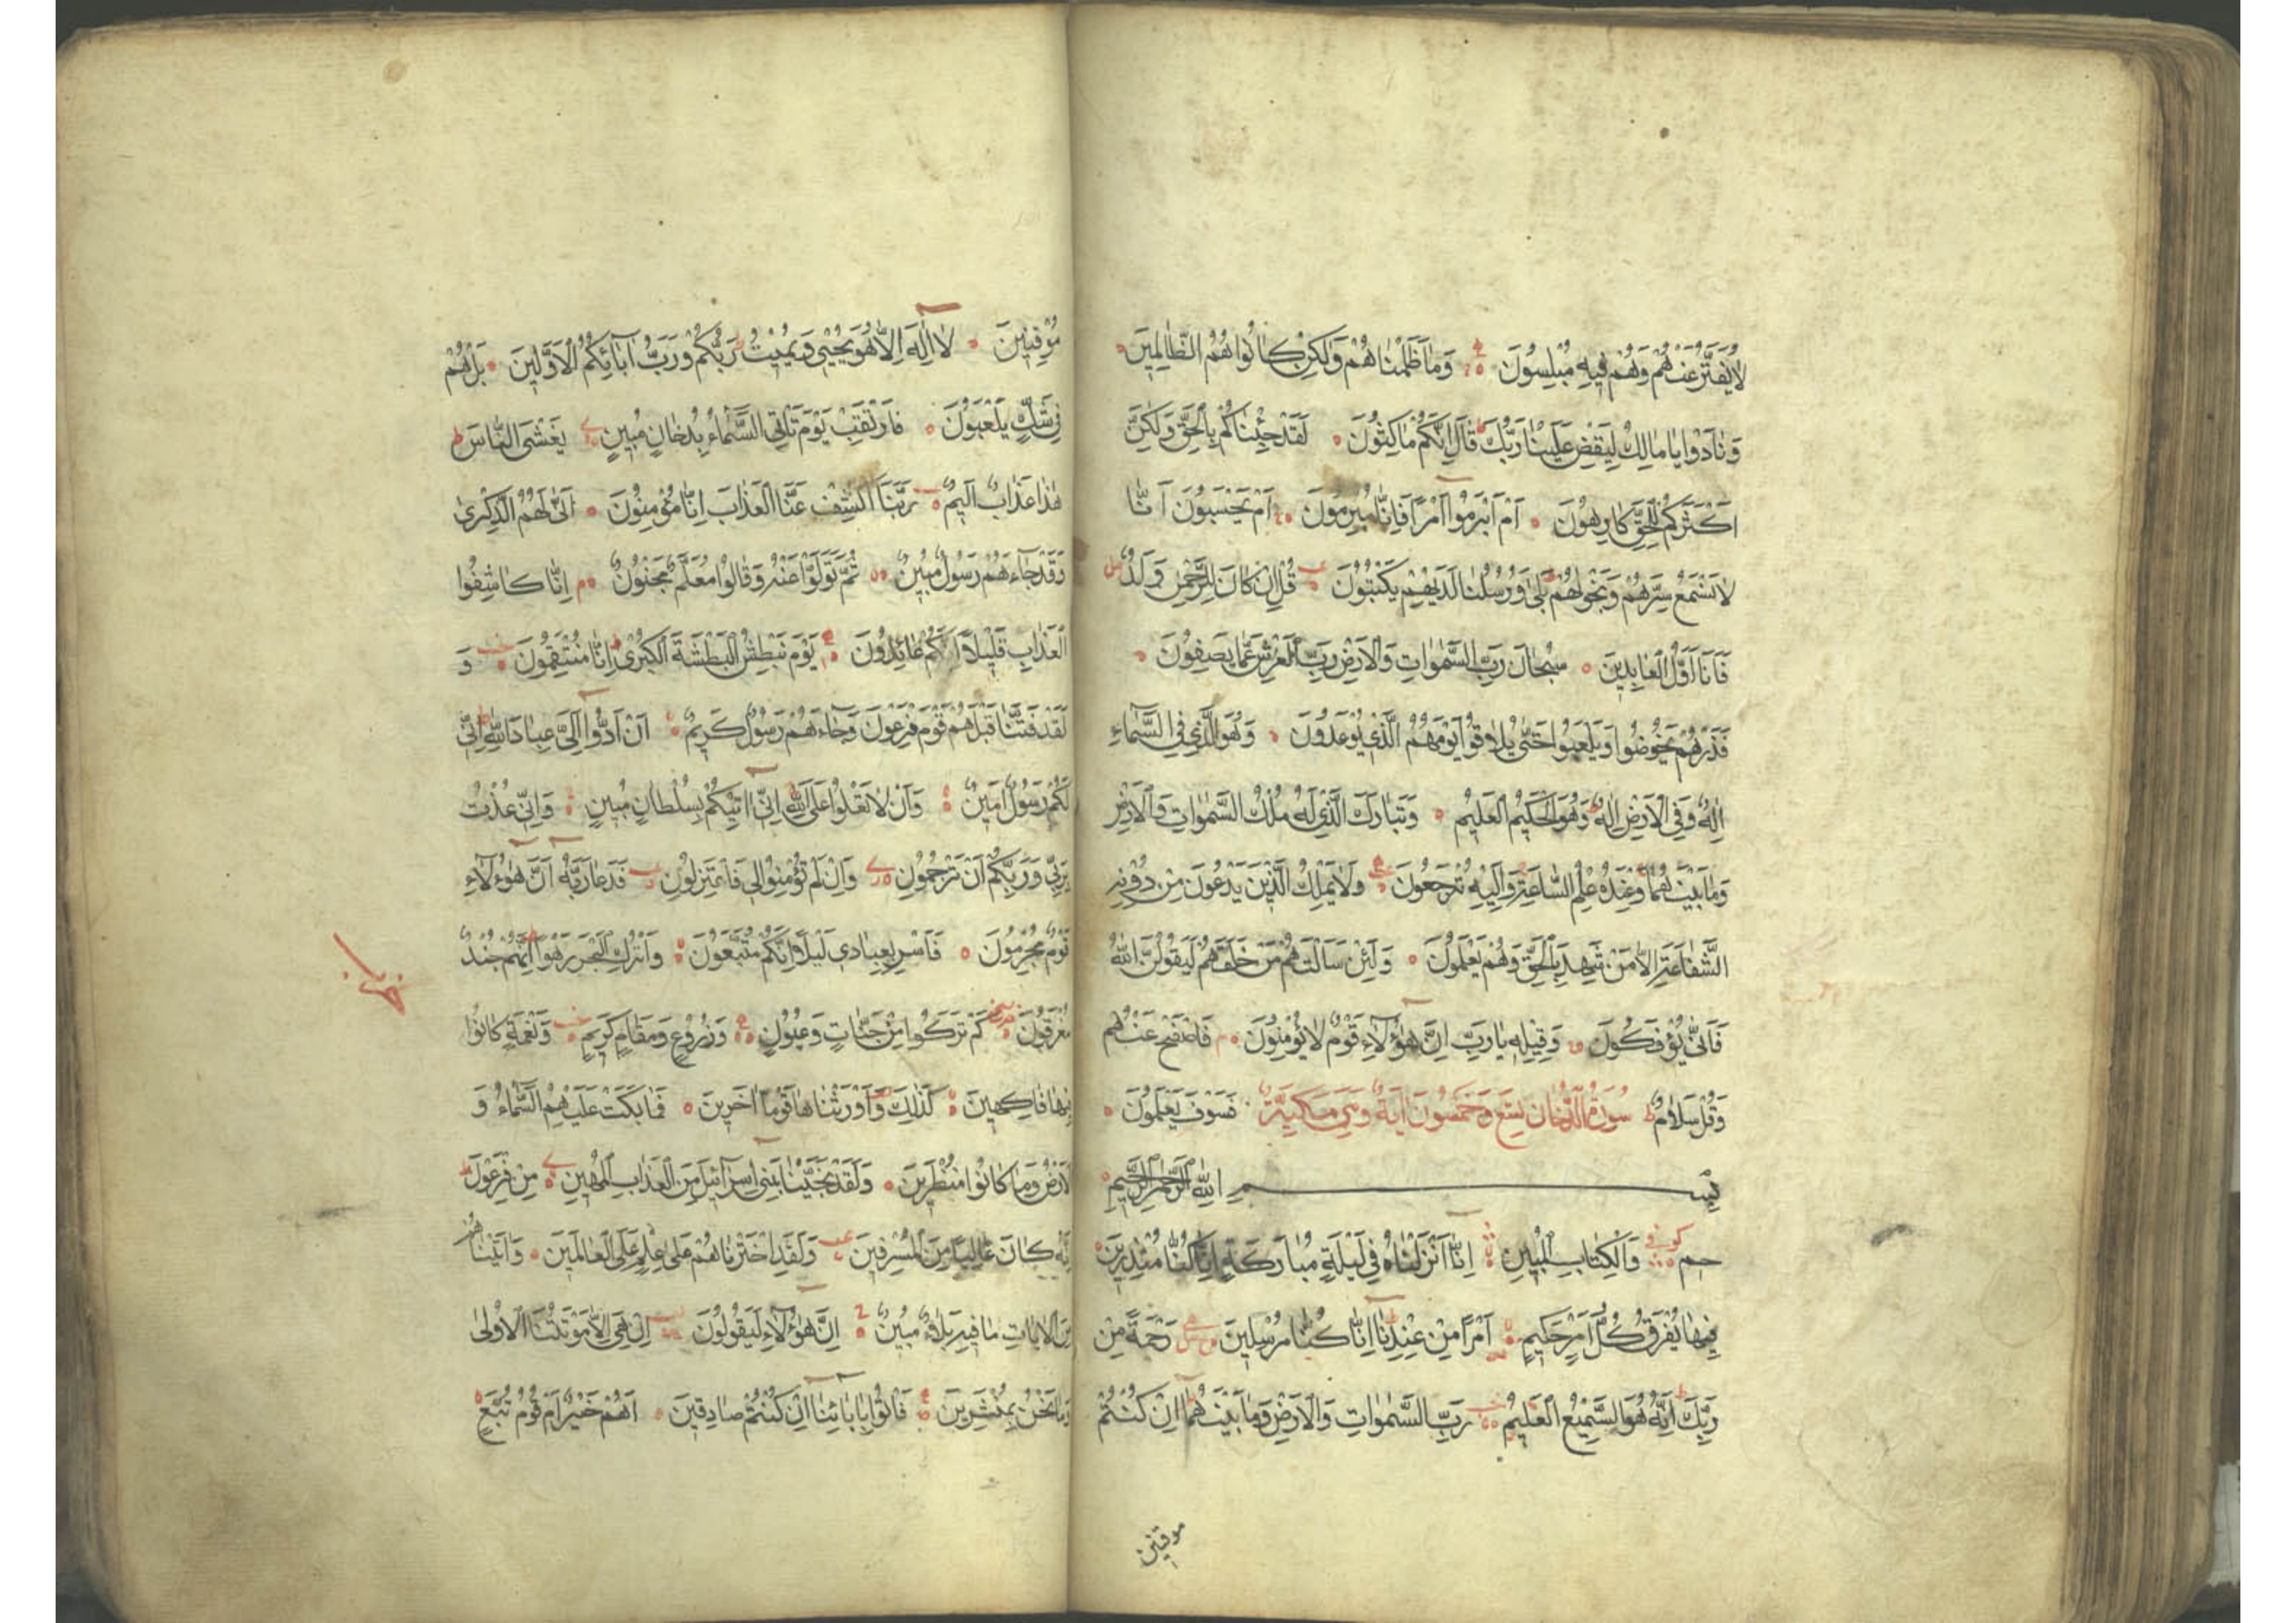 لَا يُفَتَّرُ عَنْهُمْ وَهُمْ فِيهِ مُبْلِسُونَ وَمَا ظَلَمْنَاهُمْ وَلٰكِنْ كَانُوا هُمُ الظَّالِمِينَ
وَنَادَوْا يَا مَالِكُ لِيَقْضِ عَلَيْنَا رَبُّكَ قَالَ إِنَّكُمْ مَاكِثُونَ لَقَدْ جِئْنَاكُمْ بِالْحَقِّ وَلٰكِنَّ
اَكْثَرَكُمْ لِلْحَقِّ كَارِهُونَ اَمْ اَبْرَمُوا اَمْرًا فَاِنَّا مُبْرِمُونَ اَمْ يَحْسَبُونَ اَنَّا
لَا نَسْمَعُ سِرَّهُمْ وَنَجْوٰيهُمْ بَلٰى وَرُسُلُنَا لَدَيْهِمْ يَكْتُبُونَ قُلْ اِنْ كَانَ لِلرَّحْمٰنِ وَلَدٌ
فَاَنَا اَوَّلُ الْعَابِدِينَ سُبْحَانَ رَبِّ السَّمٰوَاتِ وَالْاَرْضِ رَبِّ الْعَرْشِ عَمَّا يَصِفُونَ
فَذَرْهُمْ يَخُوضُوا وَيَلْعَبُوا حَتّٰى يُلَاقُوا يَوْمَهُمُ الَّذِي يُوعَدُونَ وَهُوَ الَّذِي فِي السَّمَاءِ
اِلٰهٌ وَفِي الْاَرْضِ اِلٰهٌ وَهُوَ الْحَكِيمُ الْعَلِيمُ وَتَبَارَكَ الَّذِي لَهُ مُلْكُ السَّمٰوَاتِ وَالْاَرْضِ
وَمَا بَيْنَهُمَا وَعِنْدَهُ عِلْمُ السَّاعَةِ وَاِلَيْهِ تُرْجَعُونَ وَلَا يَمْلِكُ الَّذِينَ يَدْعُونَ مِنْ دُونِهِ
الشَّفَاعَةَ اِلَّا مَنْ شَهِدَ بِالْحَقِّ وَهُمْ يَعْلَمُونَ وَلَئِنْ سَاَلْتَهُمْ مَنْ خَلَقَهُمْ لَيَقُولُنَّ اللّٰهُ
فَاَنّٰى يُؤْفَكُونَ وَقِيلِهِ يَا رَبِّ اِنَّ هٰؤُلَاءِ قَوْمٌ لَا يُؤْمِنُونَ فَاصْفَحْ عَنْهُمْ
وَقُلْ سَلَامٌ سُورَةُ الدُّخَانِ تِسْعٌ وَخَمْسُونَ اٰيَةً وَهِيَ مَكِّيَّةٌ فَسَوْفَ يَعْلَمُونَ
بِسْمِ اللّٰهِ الرَّحْمٰنِ الرَّحِيمِ
حم كوفي وَالْكِتَابِ الْمُبِينِ اِنَّا اَنْزَلْنَاهُ فِي لَيْلَةٍ مُبَارَكَةٍ اِنَّا كُنَّا مُنْذِرِينَ
فِيهَا يُفْرَقُ كُلُّ اَمْرٍ حَكِيمٍ اَمْرًا مِنْ عِنْدِنَا اِنَّا كُنَّا مُرْسِلِينَ رَحْمَةً مِنْ
رَبِّكَ اِنَّهُ هُوَ السَّمِيعُ الْعَلِيمُ رَبِّ السَّمٰوَاتِ وَالْاَرْضِ وَمَا بَيْنَهُمَا اِنْ كُنْتُمْ
موقنين
مُوقِنِينَ لَا اِلٰهَ اِلَّا هُوَ يُحْيِي وَيُمِيتُ رَبُّكُمْ وَرَبُّ اٰبَائِكُمُ الْاَوَّلِينَ بَلْ هُمْ
فِي شَكٍّ يَلْعَبُونَ فَارْتَقِبْ يَوْمَ تَأْتِي السَّمَاءُ بِدُخَانٍ مُبِينٍ يَغْشَى النَّاسَ
هٰذَا عَذَابٌ اَلِيمٌ رَبَّنَا اكْشِفْ عَنَّا الْعَذَابَ اِنَّا مُؤْمِنُونَ اَنّٰى لَهُمُ الذِّكْرٰى
وَقَدْ جَاءَهُمْ رَسُولٌ مُبِينٌ ثُمَّ تَوَلَّوْا عَنْهُ وَقَالُوا مُعَلَّمٌ مَجْنُونٌ اِنَّا كَاشِفُوا
الْعَذَابِ قَلِيلًا اِنَّكُمْ عَائِدُونَ يَوْمَ نَبْطِشُ الْبَطْشَةَ الْكُبْرٰى اِنَّا مُنْتَقِمُونَ وَ
لَقَدْ فَتَنَّا قَبْلَهُمْ قَوْمَ فِرْعَوْنَ وَجَاءَهُمْ رَسُولٌ كَرِيمٌ اَنْ اَدُّوا اِلَيَّ عِبَادَ اللّٰهِ اِنِّي
لَكُمْ رَسُولٌ اَمِينٌ وَاَنْ لَا تَعْلُوا عَلَى اللّٰهِ اِنِّي اٰتِيكُمْ بِسُلْطَانٍ مُبِينٍ وَاِنِّي عُذْتُ
بِرَبِّي وَرَبِّكُمْ اَنْ تَرْجُمُونِ وَاِنْ لَمْ تُؤْمِنُوا لِي فَاعْتَزِلُونِ فَدَعَا رَبَّهُ اَنَّ هٰؤُلَاءِ
قَوْمٌ مُجْرِمُونَ فَاَسْرِ بِعِبَادِي لَيْلًا اِنَّكُمْ مُتَّبَعُونَ وَاتْرُكِ الْبَحْرَ رَهْوًا اِنَّهُمْ جُنْدٌ
مُغْرَقُونَ كَمْ تَرَكُوا مِنْ جَنَّاتٍ وَعُيُونٍ وَزُرُوعٍ وَمَقَامٍ كَرِيمٍ وَنَعْمَةٍ كَانُوا
فِيهَا فَاكِهِينَ كَذٰلِكَ وَاَوْرَثْنَاهَا قَوْمًا اٰخَرِينَ فَمَا بَكَتْ عَلَيْهِمُ السَّمَاءُ وَ
الْاَرْضُ وَمَا كَانُوا مُنْظَرِينَ وَلَقَدْ نَجَّيْنَا بَنِي اِسْرَائِيلَ مِنَ الْعَذَابِ الْمُهِينِ مِنْ فِرْعَوْنَ
اِنَّهُ كَانَ عَالِيًا مِنَ الْمُسْرِفِينَ وَلَقَدِ اخْتَرْنَاهُمْ عَلٰى عِلْمٍ عَلَى الْعَالَمِينَ وَاٰتَيْنَاهُمْ
مِنَ الْاٰيَاتِ مَا فِيهِ بَلَاءٌ مُبِينٌ اِنَّ هٰؤُلَاءِ لَيَقُولُونَ اِنْ هِيَ اِلَّا مَوْتَتُنَا الْاُولٰى
وَمَا نَحْنُ بِمُنْشَرِينَ فَأْتُوا بِاٰبَائِنَا اِنْ كُنْتُمْ صَادِقِينَ اَهُمْ خَيْرٌ اَمْ قَوْمُ تُبَّعٍ